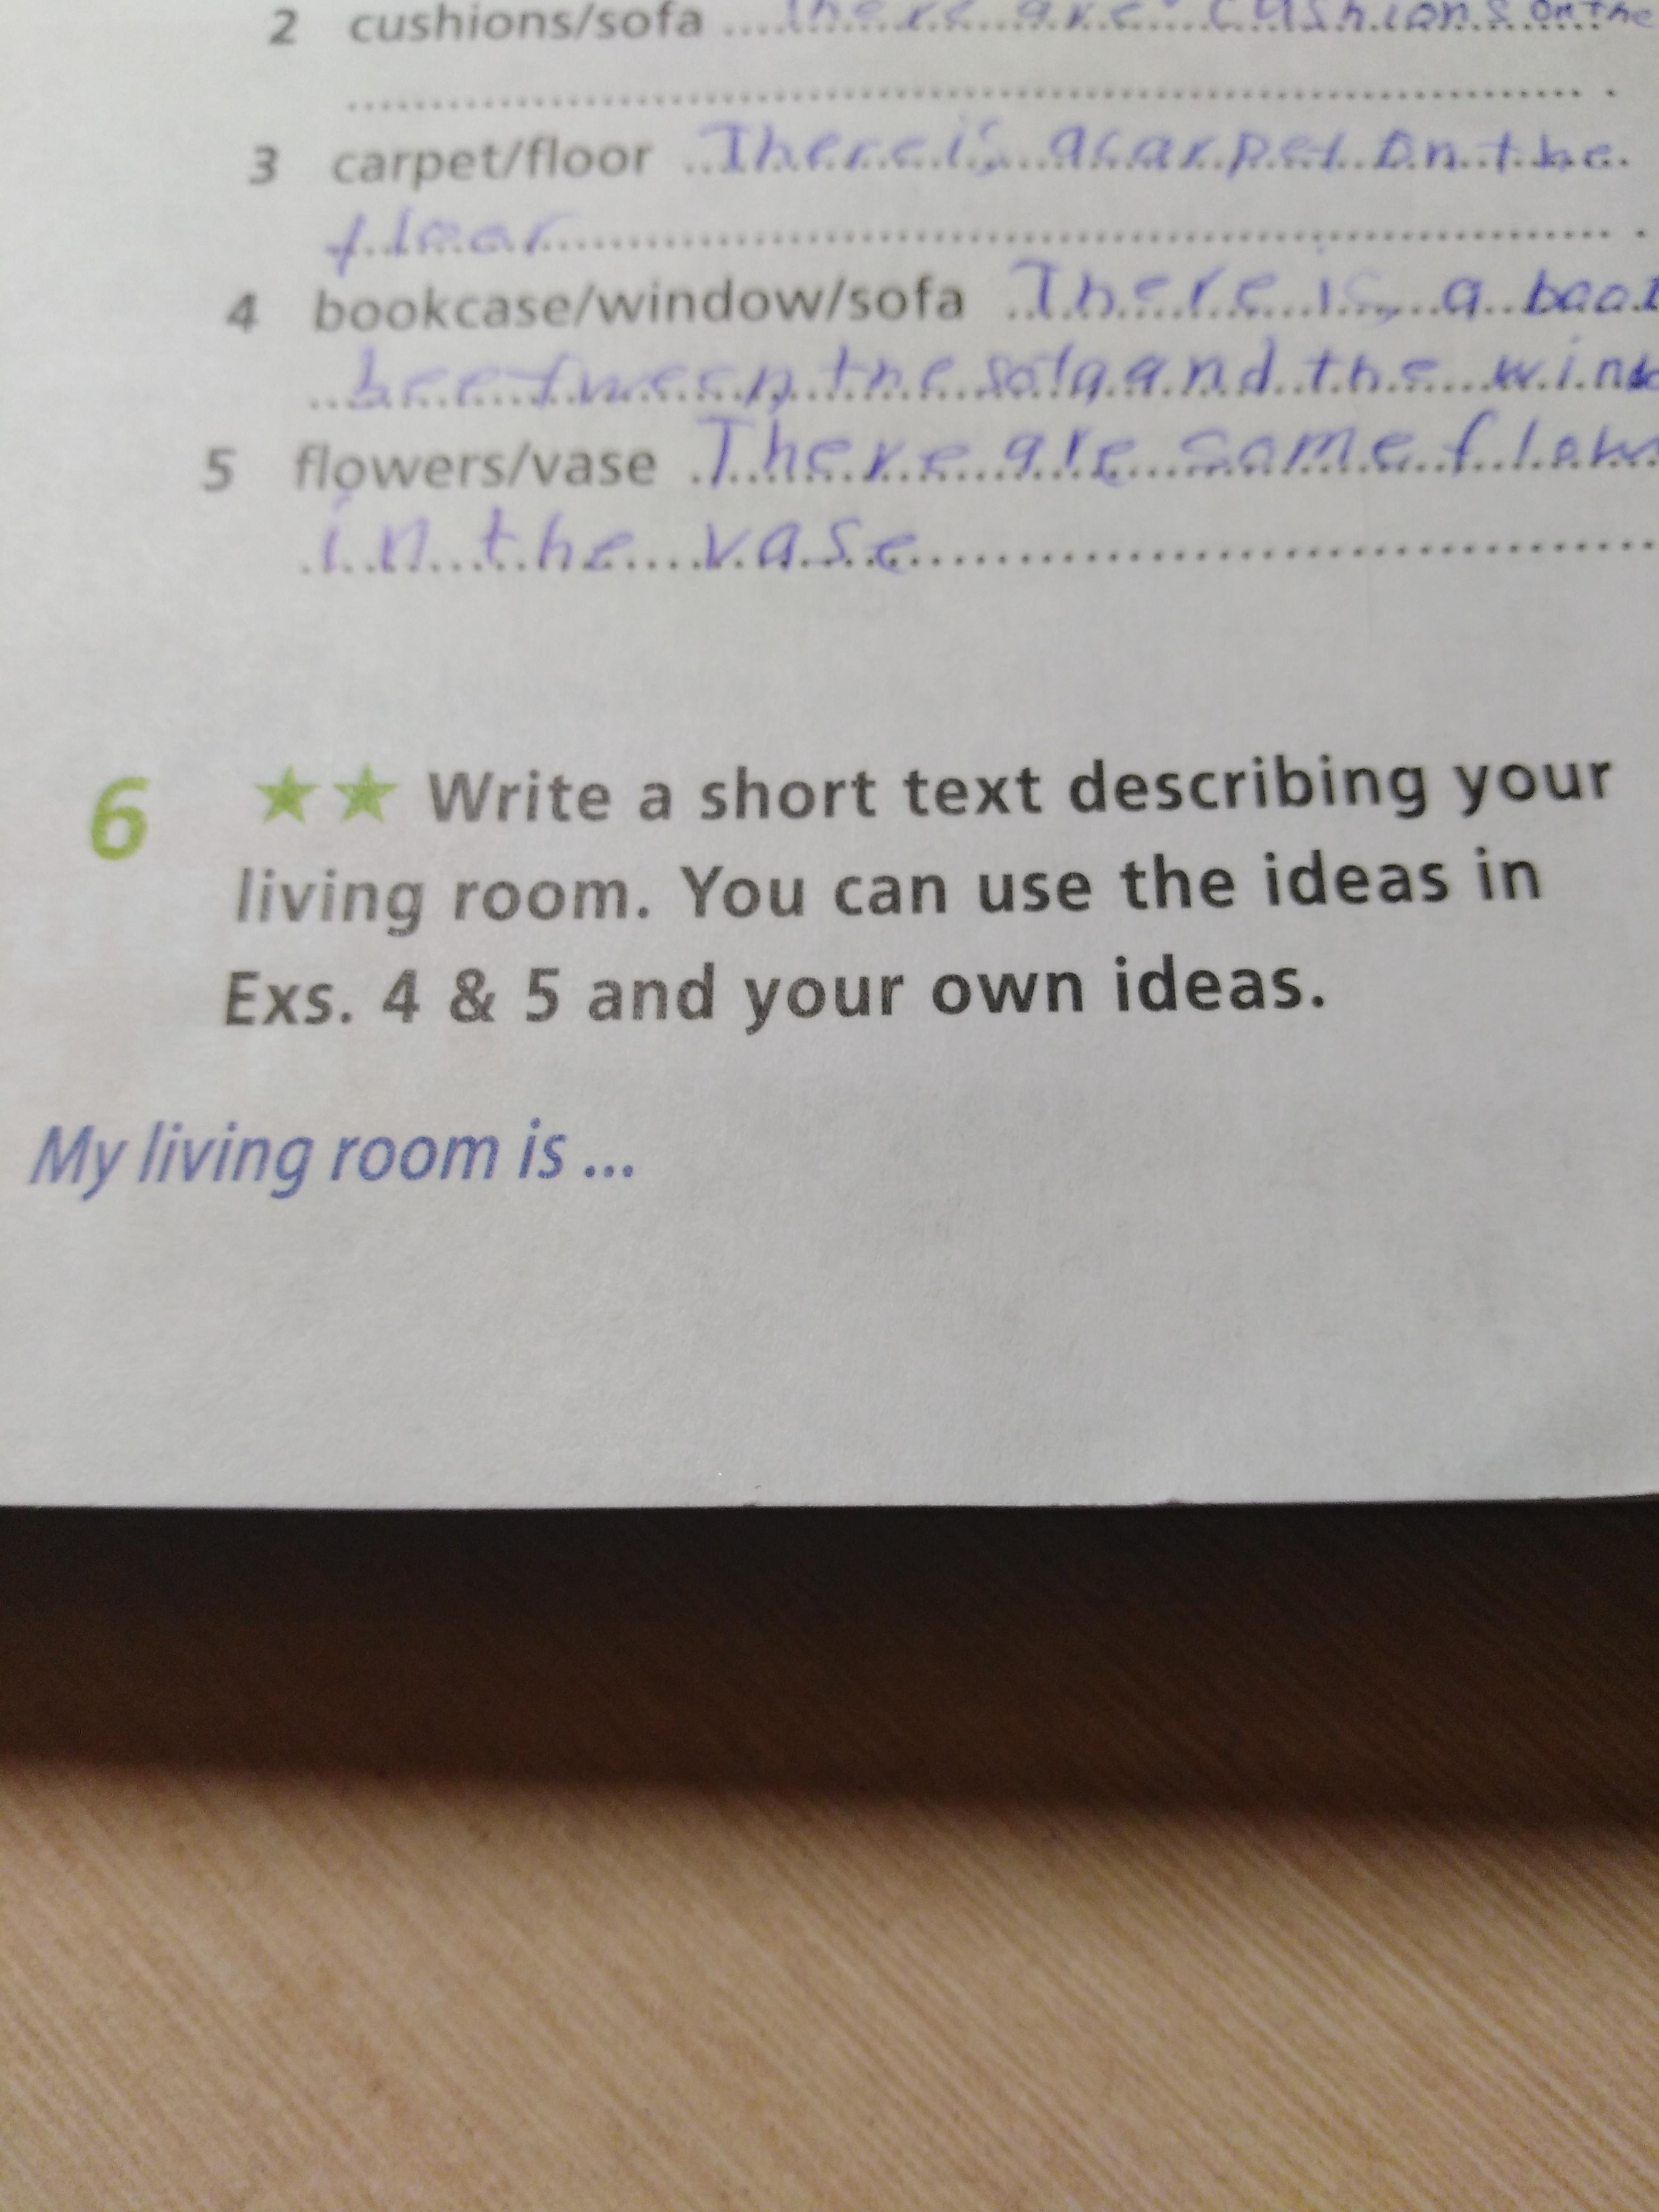 2 cushions/sofa There are cushions on the
3 carpet/floor There is a carpet on the
floor
4 bookcase/window/sofa There is a
beetween the sofa and the
5 flowers/vase There are some
in the vase
6 ★★ Write a short text describing your
living room. You can use the ideas in
Exs. 4 & 5 and your own ideas.
My living room is ...